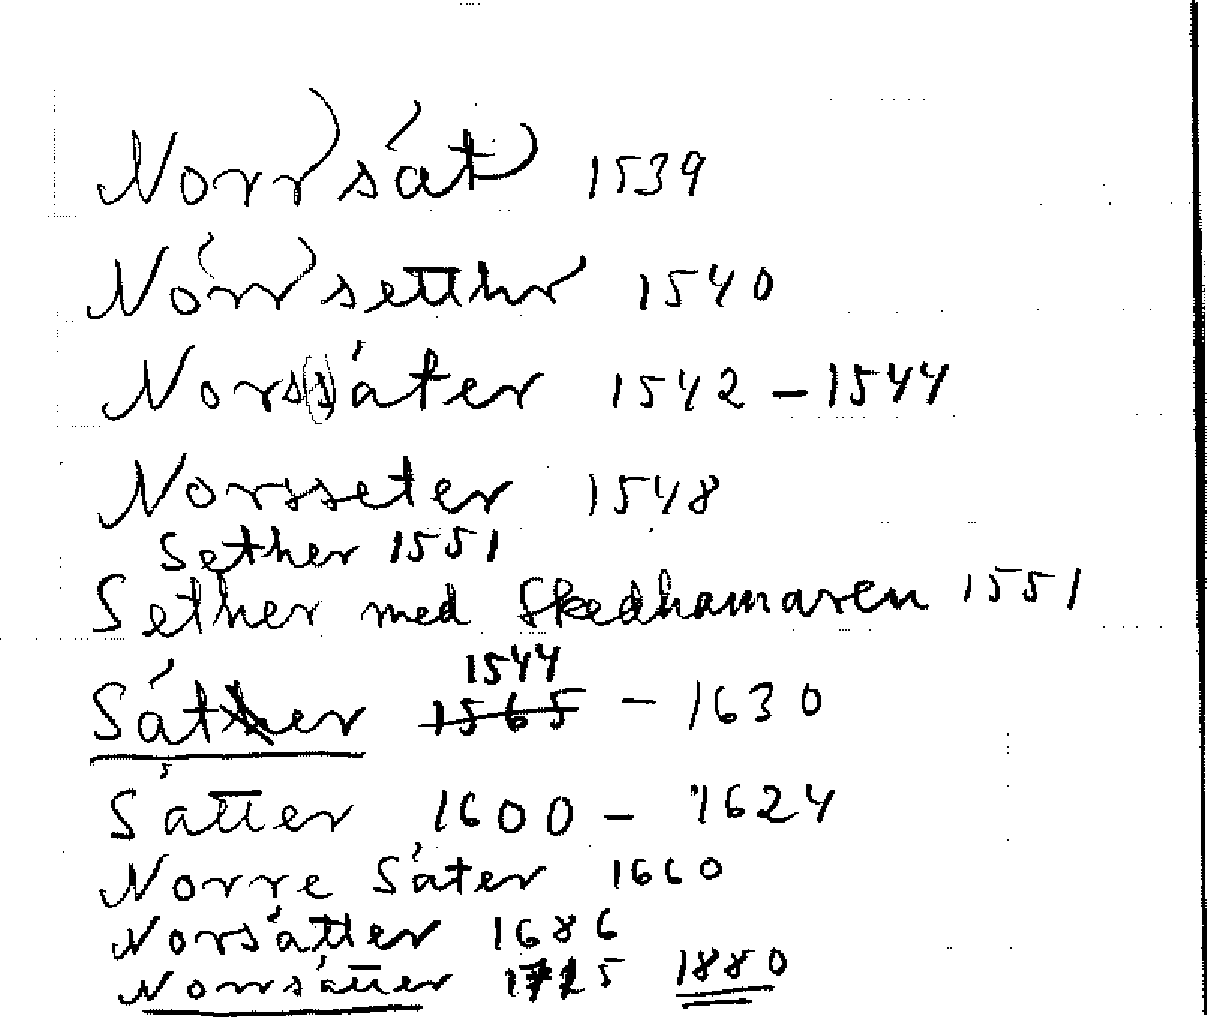 Norrsät 1539
Norrsetthr 1540
Nors(s)äter 1542 – 1544
Norsseter 1548
Sether 1551
Sether med Skedhamaren 1551
1544
Säter 1565 – 1630
Sätter 1600 – 1624
Norre Säter 1660
Norsätter 1686
Norrsätter 1725 1880